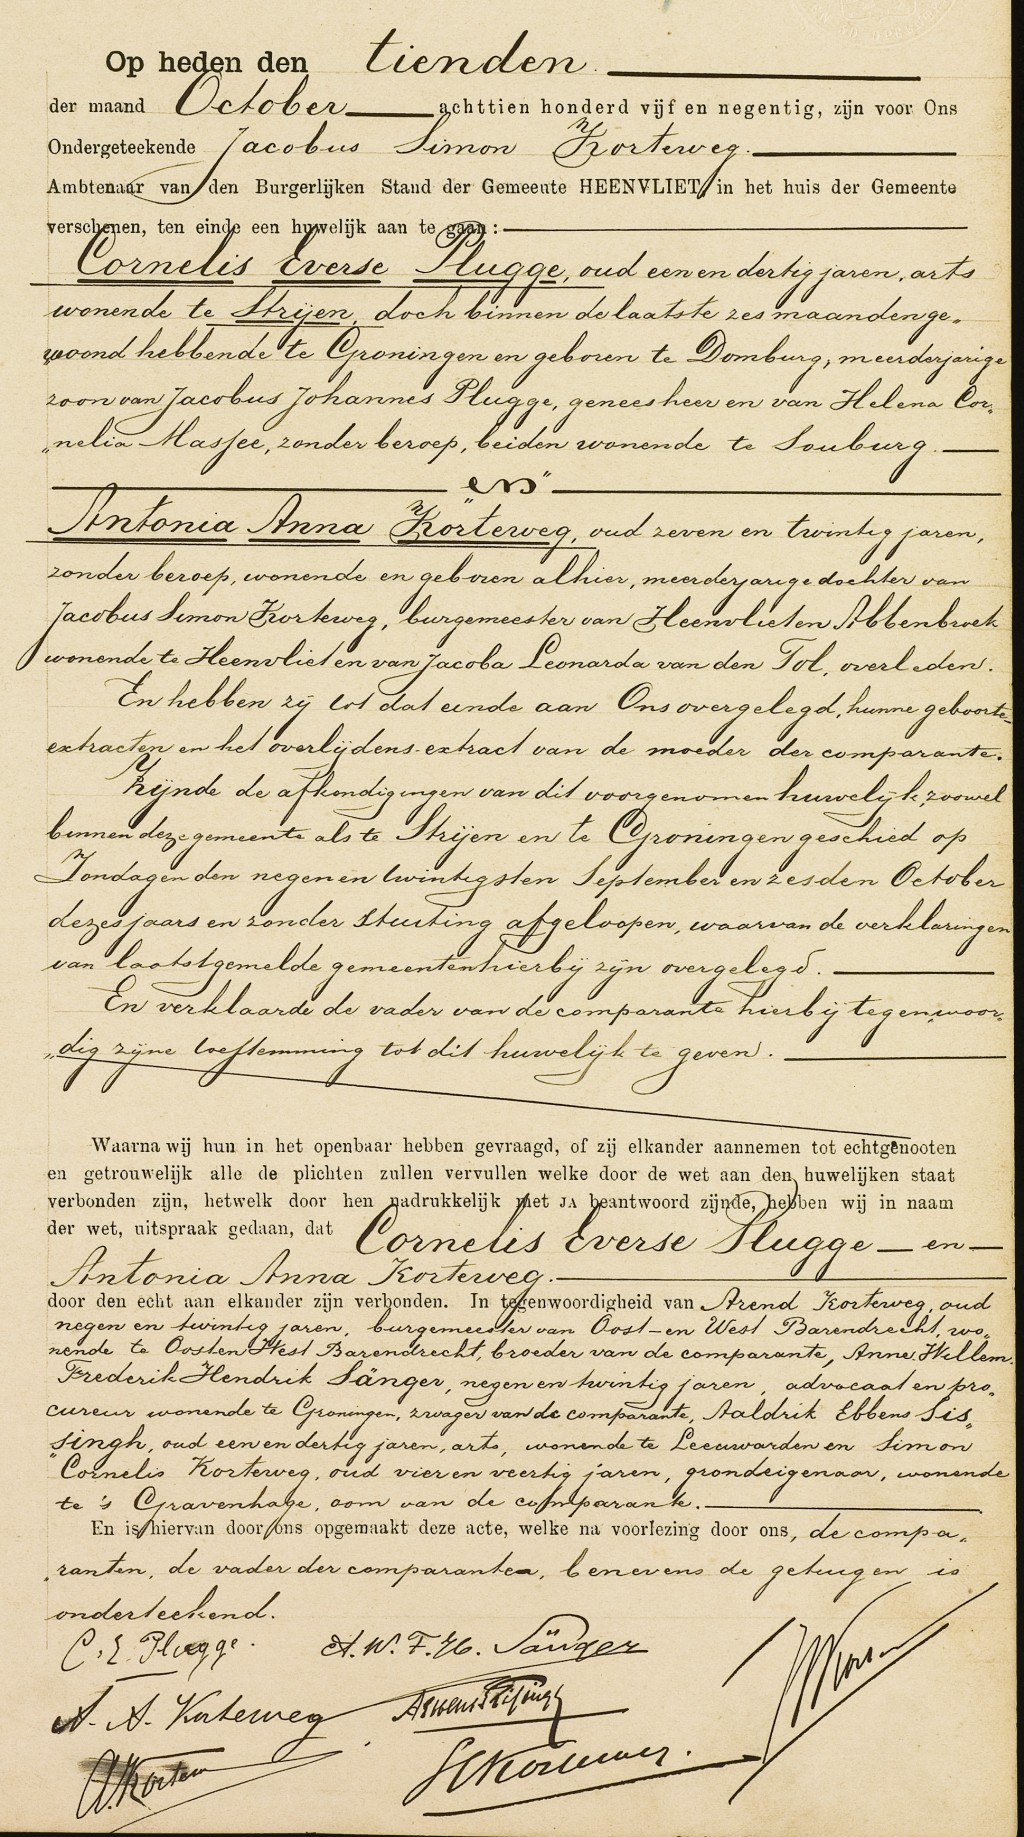 Op heden den tienden
der maand October achttien honderd vijf en negentig, zijn voor Ons
Ondergeteekende Jacobus Simon Korteweg.
Ambtenaar van den Burgerlijken Stand der Gemeente HEENVLIET, in het huis der Gemeente
verschenen, ten einde een huwelijk aan te gaan:
Cornelis Everse Plugge, oud een en dertig jaren, arts
wonende te Strijen, doch binnen de laatste zes maanden ge„
„woond hebbende te Groningen en geboren te Domburg, meerderjarige
zoon van Jacobus Johannes Plugge, geneesheer en van Helena Cor„
„nelia Massee, zonder beroep, beiden wonende te Souburg.
„en"
Antonia Anna Korteweg, oud zeven en twintig jaren,
zonder beroep, wonende en geboren alhier, meerderjarige dochter van
Jacobus Simon Korteweg, burgemeester van Heenvliet en Abbenbroek
wonende te Heenvliet en van Jacoba Leonarda van den Tol, overleden.
En hebben zij tot dat einde aan Ons overgelegd, hunne geboorte-
extracten en het overlijdens-extract van de moeder der comparante.
Zijnde de afkondigingen van dit voorgenomen huwelijk, zoowel
binnen deze gemeente als te Strijen en te Groningen geschied op
Zondagen den negen en twintigsten September en zesden October
dezes jaars en zonder stuiting afgeloopen, waarvan de verklaringen
van laatstgemelde gemeenten hierbij zijn overgelegd.
En verklaarde de vader van de comparante hierbij tegenwoor„
„dig zijne toestemming tot dit huwelijk te geven.
Waarna wij hun in het openbaar hebben gevraagd, of zij elkander aannemen tot echtgenooten
en getrouwelijk alle de plichten zullen vervullen welke door de wet aan den huwelijken staat
verbonden zijn, hetwelk door hen nadrukkelijk met JA beantwoord zijnde, hebben wij in naam
der wet, uitspraak gedaan, dat Cornelis Everse Plugge — en —
Antonia Anna Korteweg.
door den echt aan elkander zijn verbonden. In tegenwoordigheid van Arend Korteweg, oud
negen en twintig jaren, burgemeester van Oost- en West Barendrecht, wo„
nende te Oost en West Barendrecht, broeder van de comparante, Anne Willem
Frederik Hendrik Sänger, negen en twintig jaren, advocaat en pro„
cureur wonende te Groningen, zwager van de comparante, Aaldrik Ebbens Sis„
„singh, oud een en dertig jaren, arts, wonende te Leeuwarden en Simon
Cornelis Korteweg, oud vier en veertig jaren, grondeigenaar, wonende
te 's Gravenhage, oom van de comparante.
En is hiervan door ons opgemaakt deze acte, welke na voorlezing door ons, de compa„
„ranten, de vader der comparante, benevens de getuigen is
onderteekend.
C. E. Plugge. A. W. F. H. Sänger
A. A. Korteweg AEbbensSissingh
A. Korteweg SCKorteweg.